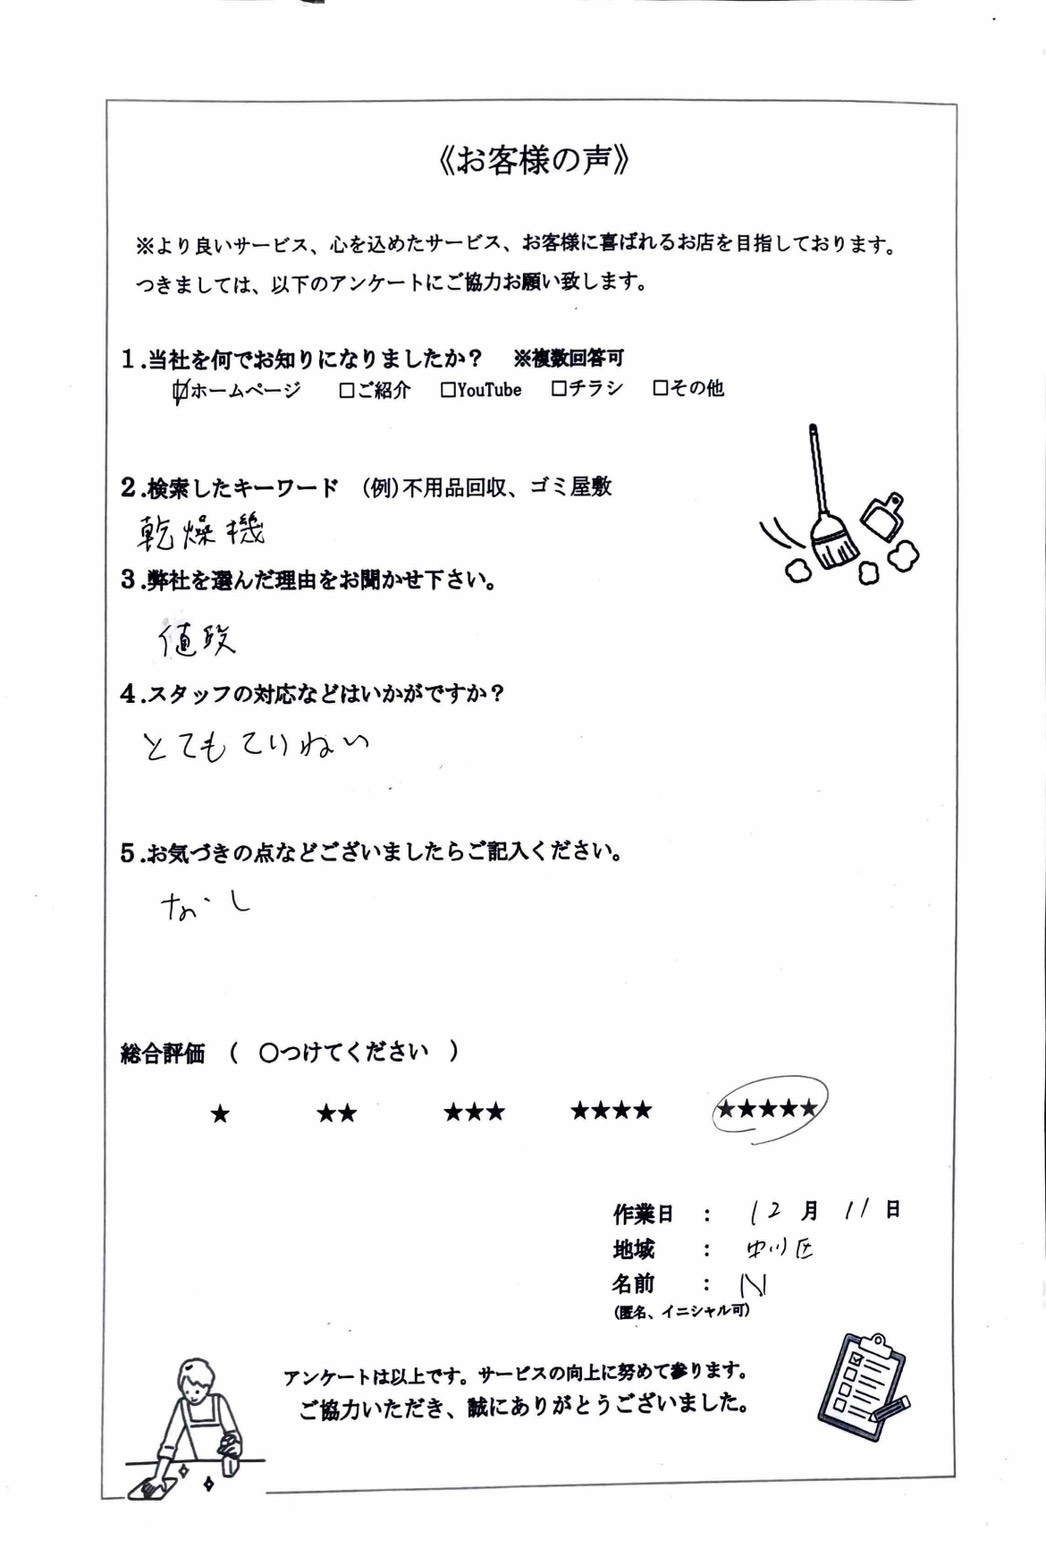 《お客様の声》
※より良いサービス、心を込めたサービス、お客様に喜ばれるお店を目指しております。
つきましては、以下のアンケートにご協力お願い致します。
1.当社を何でお知りになりましたか？ ※複数回答可
☑ホームページ □ご紹介 □YouTube □チラシ □その他
2.検索したキーワード (例)不用品回収、ゴミ屋敷
乾燥機
3.弊社を選んだ理由をお聞かせ下さい。
値段
4.スタッフの対応などはいかがですか？
とてもていねい
5.お気づきの点などございましたらご記入ください。
なし
総合評価 ( 〇つけてください )
★ ★★ ★★★ ★★★★ ★★★★★
作業日 : 12月11日
地域 : 中川区
名前 : N
(匿名、イニシャル可)
アンケートは以上です。サービスの向上に努めて参ります。
ご協力いただき、誠にありがとうございました。